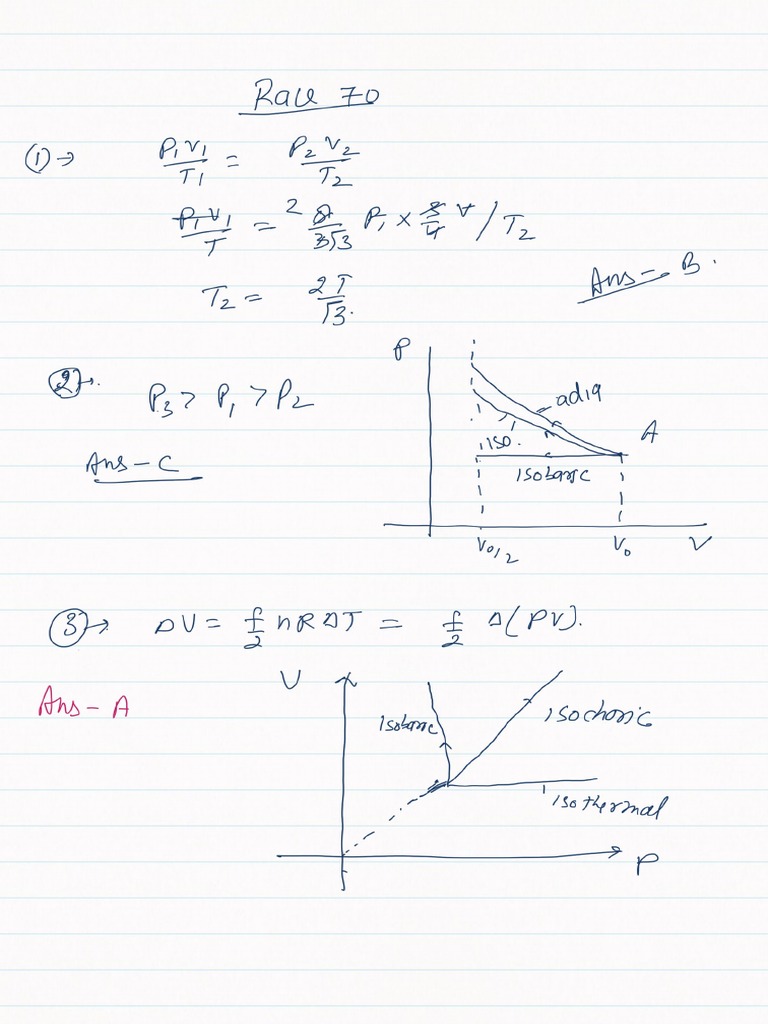 Race 70
① → P₁V₁/T₁ = P₂V₂/T₂
P₁V₁/T = 2 8/3√3 P₁ × 3/4 V / T₂
T₂ = 2T/√3.
Ans - B.
② →. P₃ > P₁ > P₂
Ans - C
P
adia
iso.
A
isobaric
V₀/2
V₀
V
③ → ΔU = f/2 nRΔT = f/2 Δ(PV).
Ans - A
U
isobaric
isochoric
isothermal
P